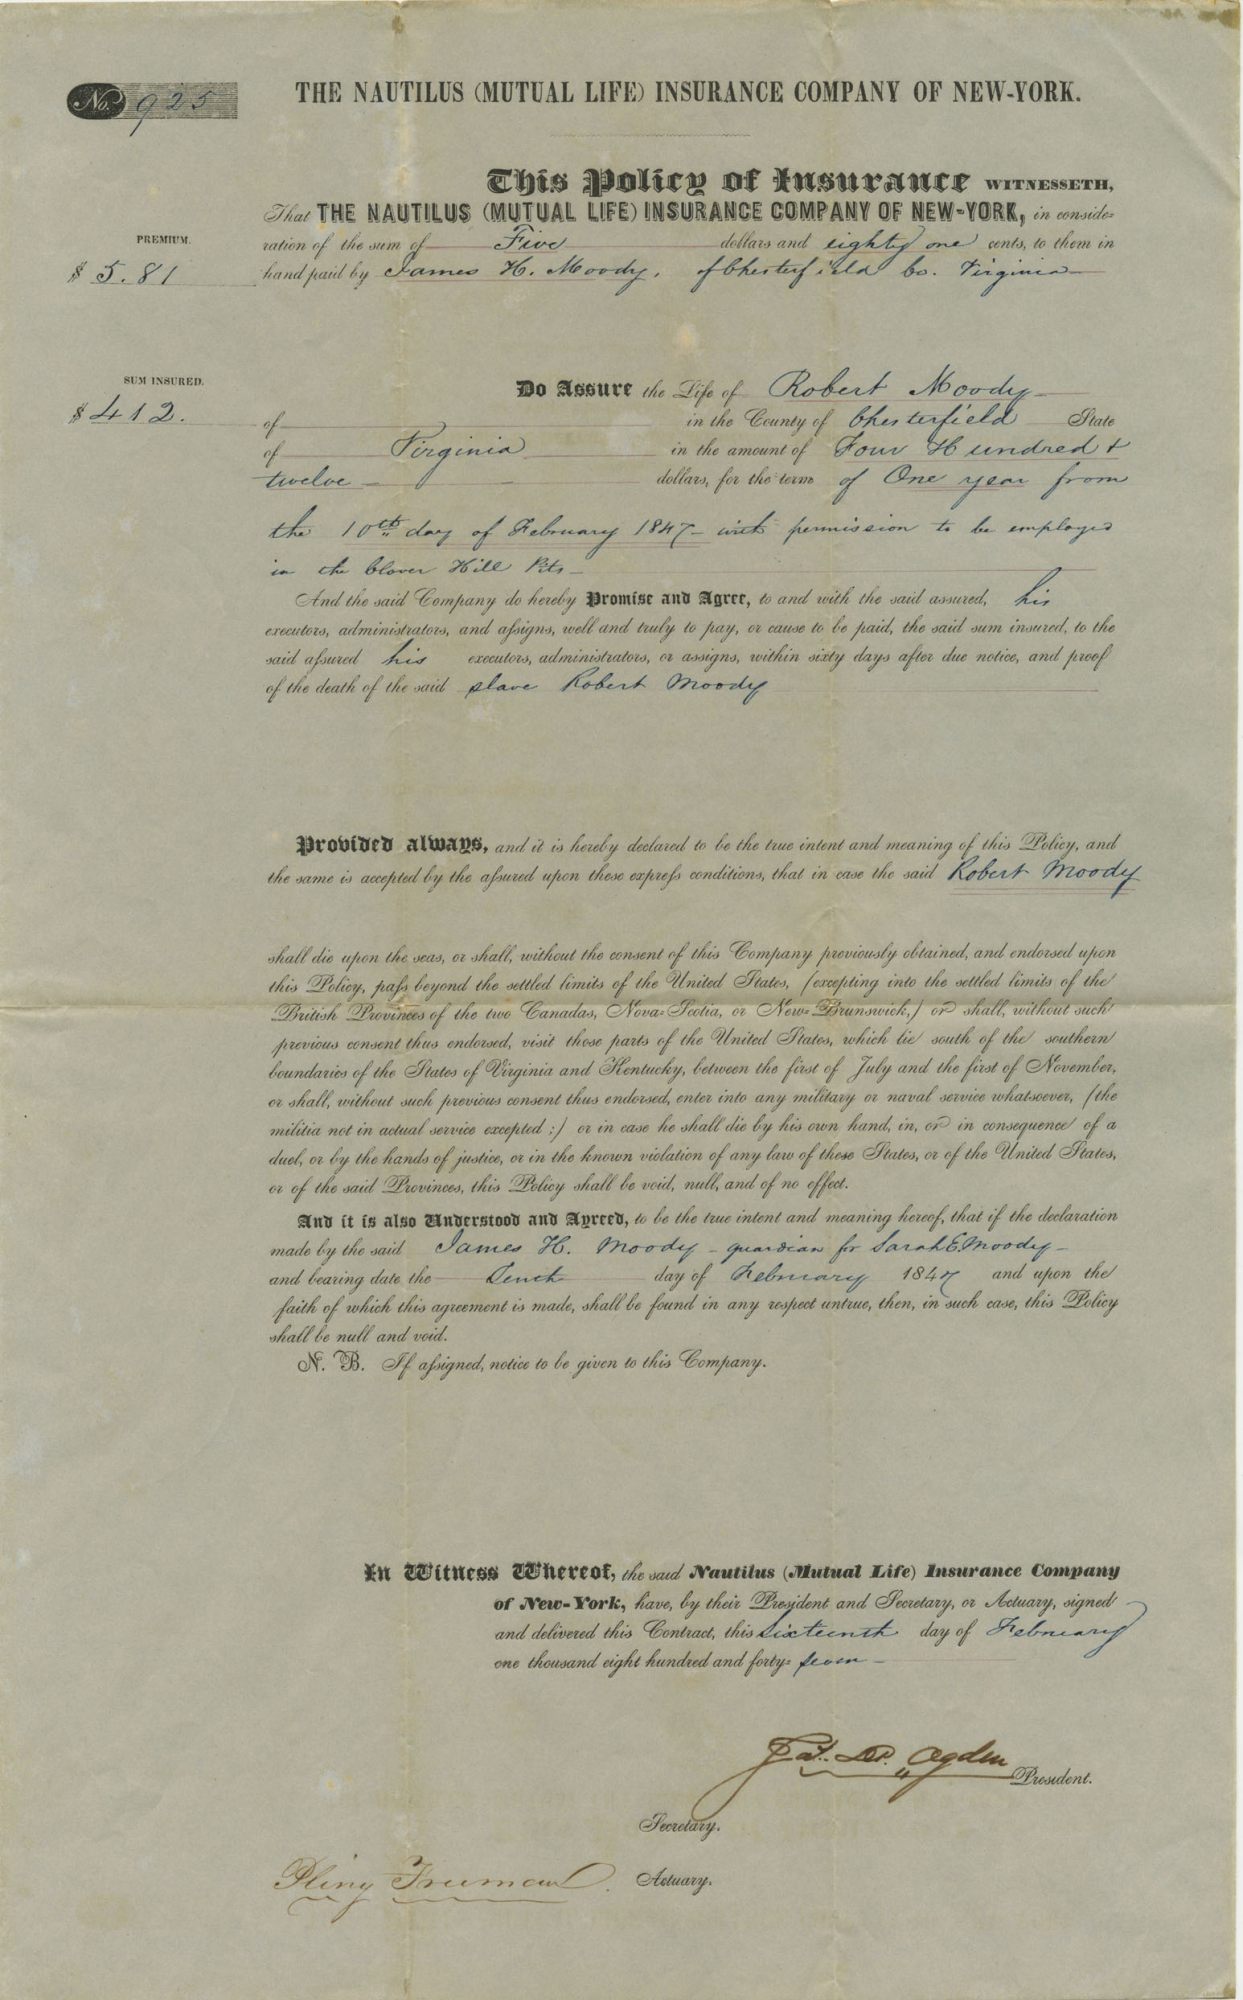 No. 925
THE NAUTILUS (MUTUAL LIFE) INSURANCE COMPANY OF NEW-YORK.
This Policy of Insurance WITNESSETH,
That THE NAUTILUS (MUTUAL LIFE) INSURANCE COMPANY OF NEW-YORK, in conside=
PREMIUM.
ration of the sum of Five dollars and eighty one cents, to them in
$ 5.81
hand paid by James H. Moody, of Chesterfield Co. Virginia
SUM INSURED.
Do Assure the Life of Robert Moody
$ 412.
of in the County of Chesterfield State
of Virginia in the amount of Four Hundred &
twelve dollars, for the term of One year from
the 10th day of February 1847 with permission to be employed
in the Clover Hill Pits
And the said Company do hereby Promise and Agree, to and with the said assured, his
executors, administrators, and assigns, well and truly to pay, or cause to be paid, the said sum insured, to the
said assured his executors, administrators, or assigns, within sixty days after due notice, and proof
of the death of the said slave Robert Moody
Provided always, and it is hereby declared to be the true intent and meaning of this Policy, and
the same is accepted by the assured upon these express conditions, that in case the said Robert Moody
shall die upon the seas, or shall, without the consent of this Company previously obtained, and endorsed upon
this Policy, pass beyond the settled limits of the United States, (excepting into the settled limits of the
British Provinces of the two Canadas, Nova=Scotia, or New=Brunswick,) or shall, without such
previous consent thus endorsed, visit those parts of the United States, which lie south of the southern
boundaries of the States of Virginia and Kentucky, between the first of July and the first of November,
or shall, without such previous consent thus endorsed, enter into any military or naval service whatsoever, (the
militia not in actual service excepted:) or in case he shall die by his own hand, in, or in consequence of a
duel, or by the hands of justice, or in the known violation of any law of these States, or of the United States,
or of the said Provinces, this Policy shall be void, null, and of no effect.
And it is also Understood and Agreed, to be the true intent and meaning hereof, that if the declaration
made by the said James H. Moody - guardian for Sarah E. Moody -
and bearing date the Tenth day of February 1847 and upon the
faith of which this agreement is made, shall be found in any respect untrue, then, in such case, this Policy
shall be null and void.
N. B. If assigned, notice to be given to this Company.
In Witness Whereof, the said Nautilus (Mutual Life) Insurance Company
of New-York, have, by their President and Secretary, or Actuary, signed
and delivered this Contract, this Sixteenth day of February
one thousand eight hundred and forty= seven -
Ogden President.
Secretary.
Pliny Freeman Actuary.